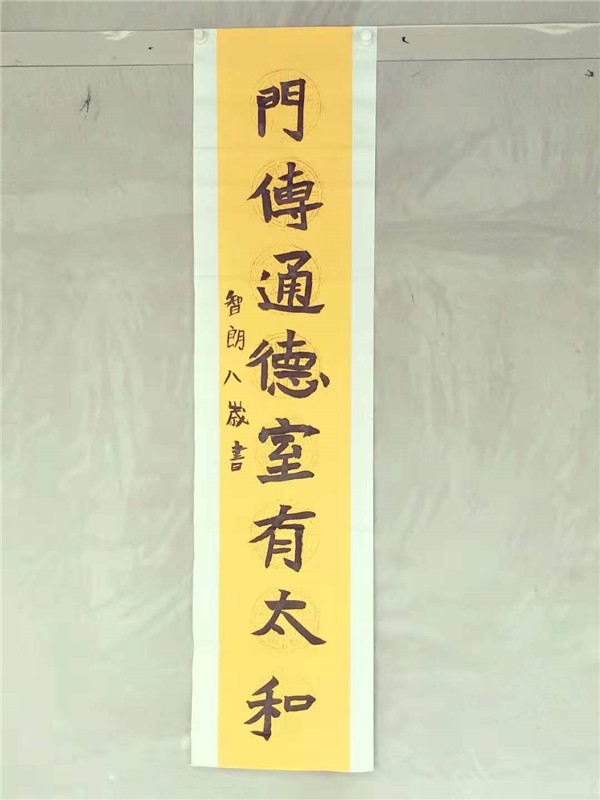 門傳通德室有太和
智朗八歲書